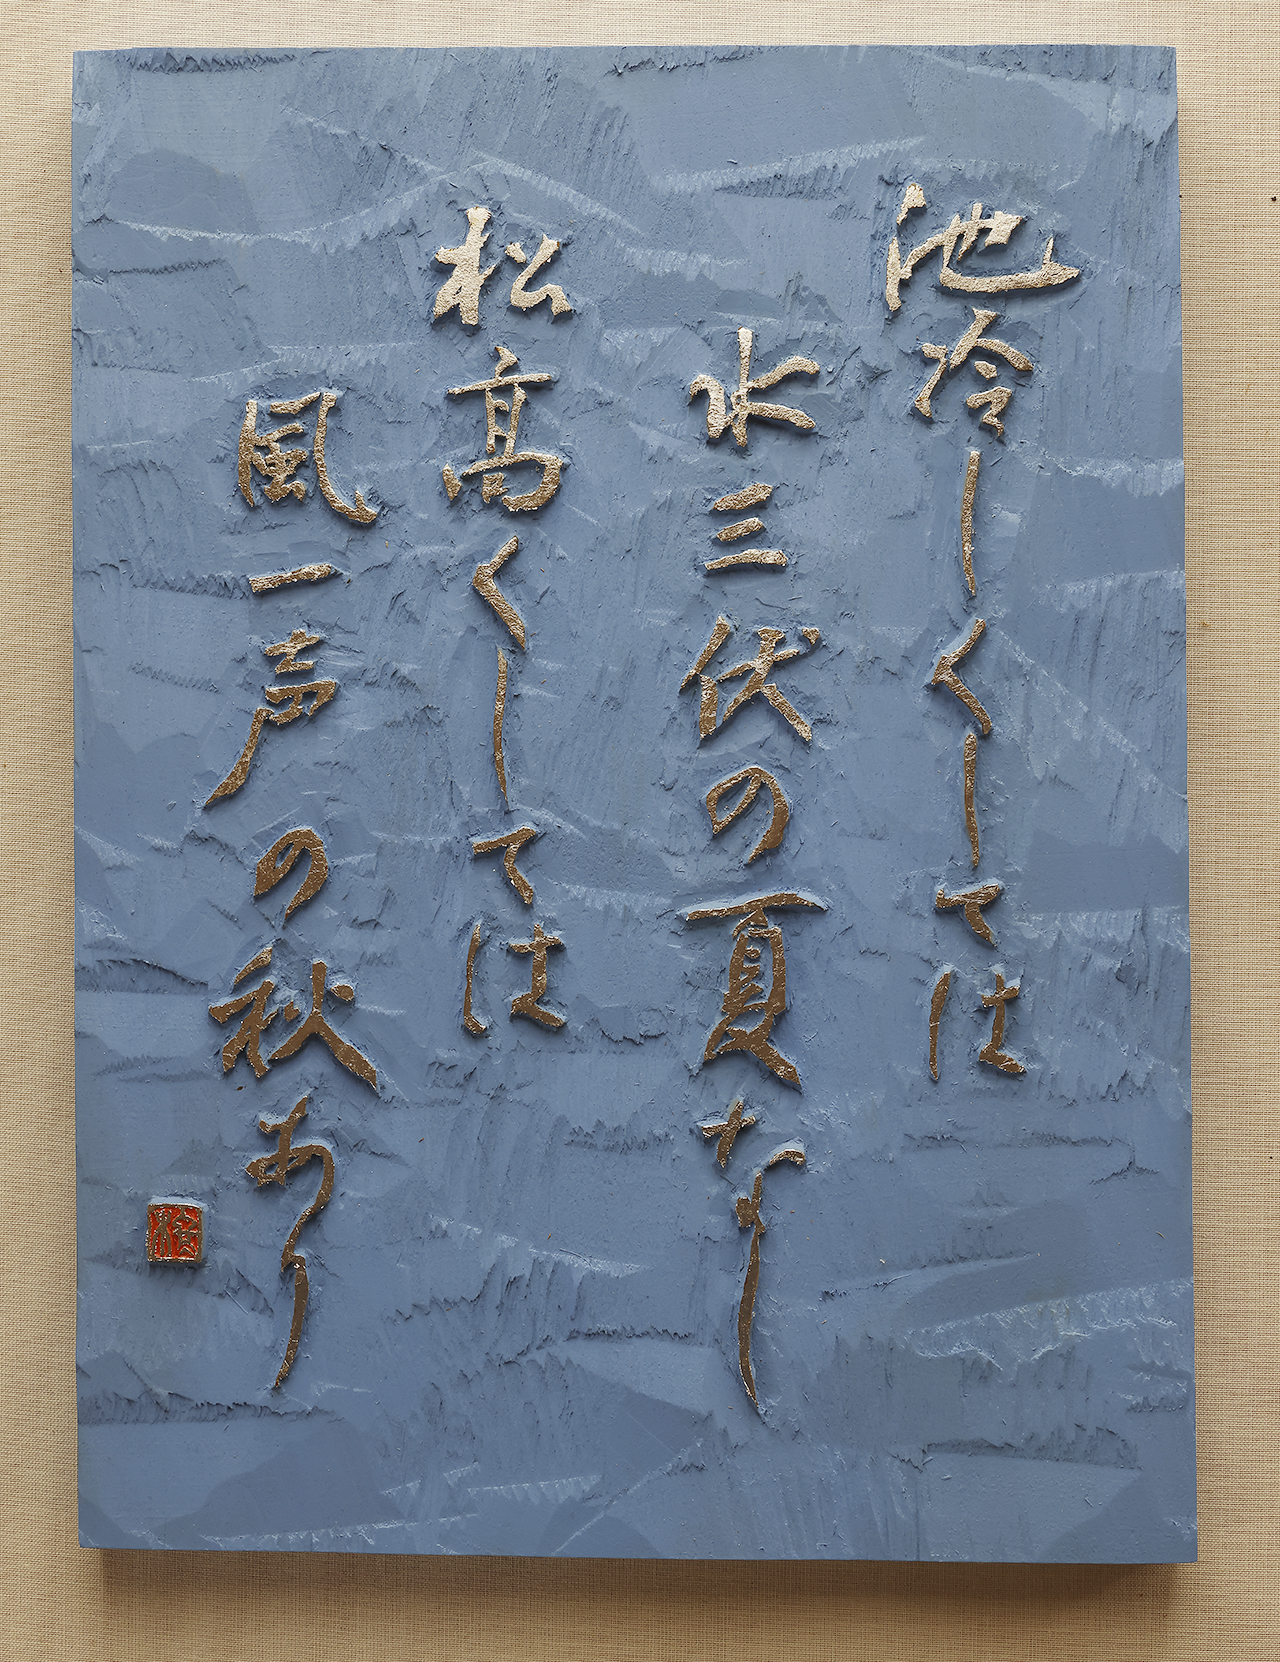 池冷しくしては
水三伏の夏なし
松高くしては
風一声の秋あり